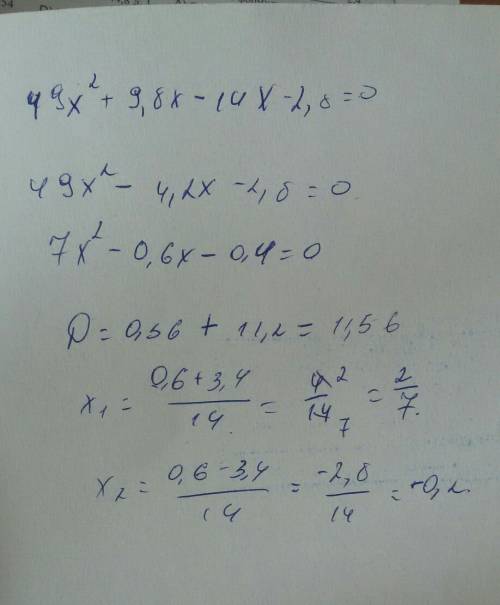 49x² + 9,8x - 14x - 2,8 = 0
49x² - 4,2x - 2,8 = 0
7x² - 0,6x - 0,4 = 0
D = 0,36 + 11,2 = 11,56
x₁ = (0,6 + 3,4)/14 = 4²/14₇ = 2/7.
x₂ = (0,6 - 3,4)/14 = -2,8/14 = -0,2.